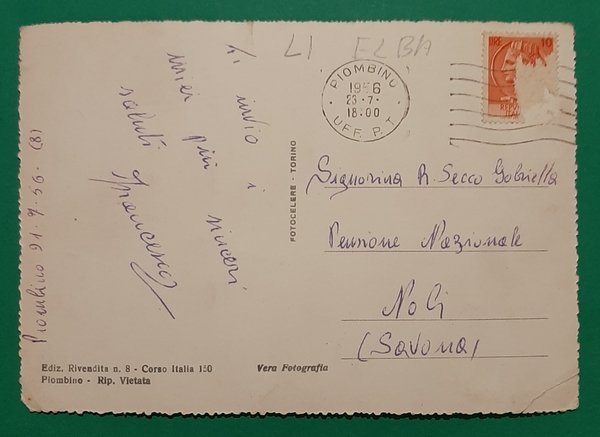 LI ELBA
LIRE 10
PIOMBINO
1956
23-7-
18.00
UFF. P. T.
Ti invio i
miei più sinceri
saluti
Francesco
Piombino 21-7-56- (8)
FOTOCELERE - TORINO
Signorina R. Secco Gabriella
Pensione Nazionale
Noli
(Savona)
Ediz. Rivendita n. 8 - Corso Italia 150
Piombino - Rip. Vietata
Vera Fotografia